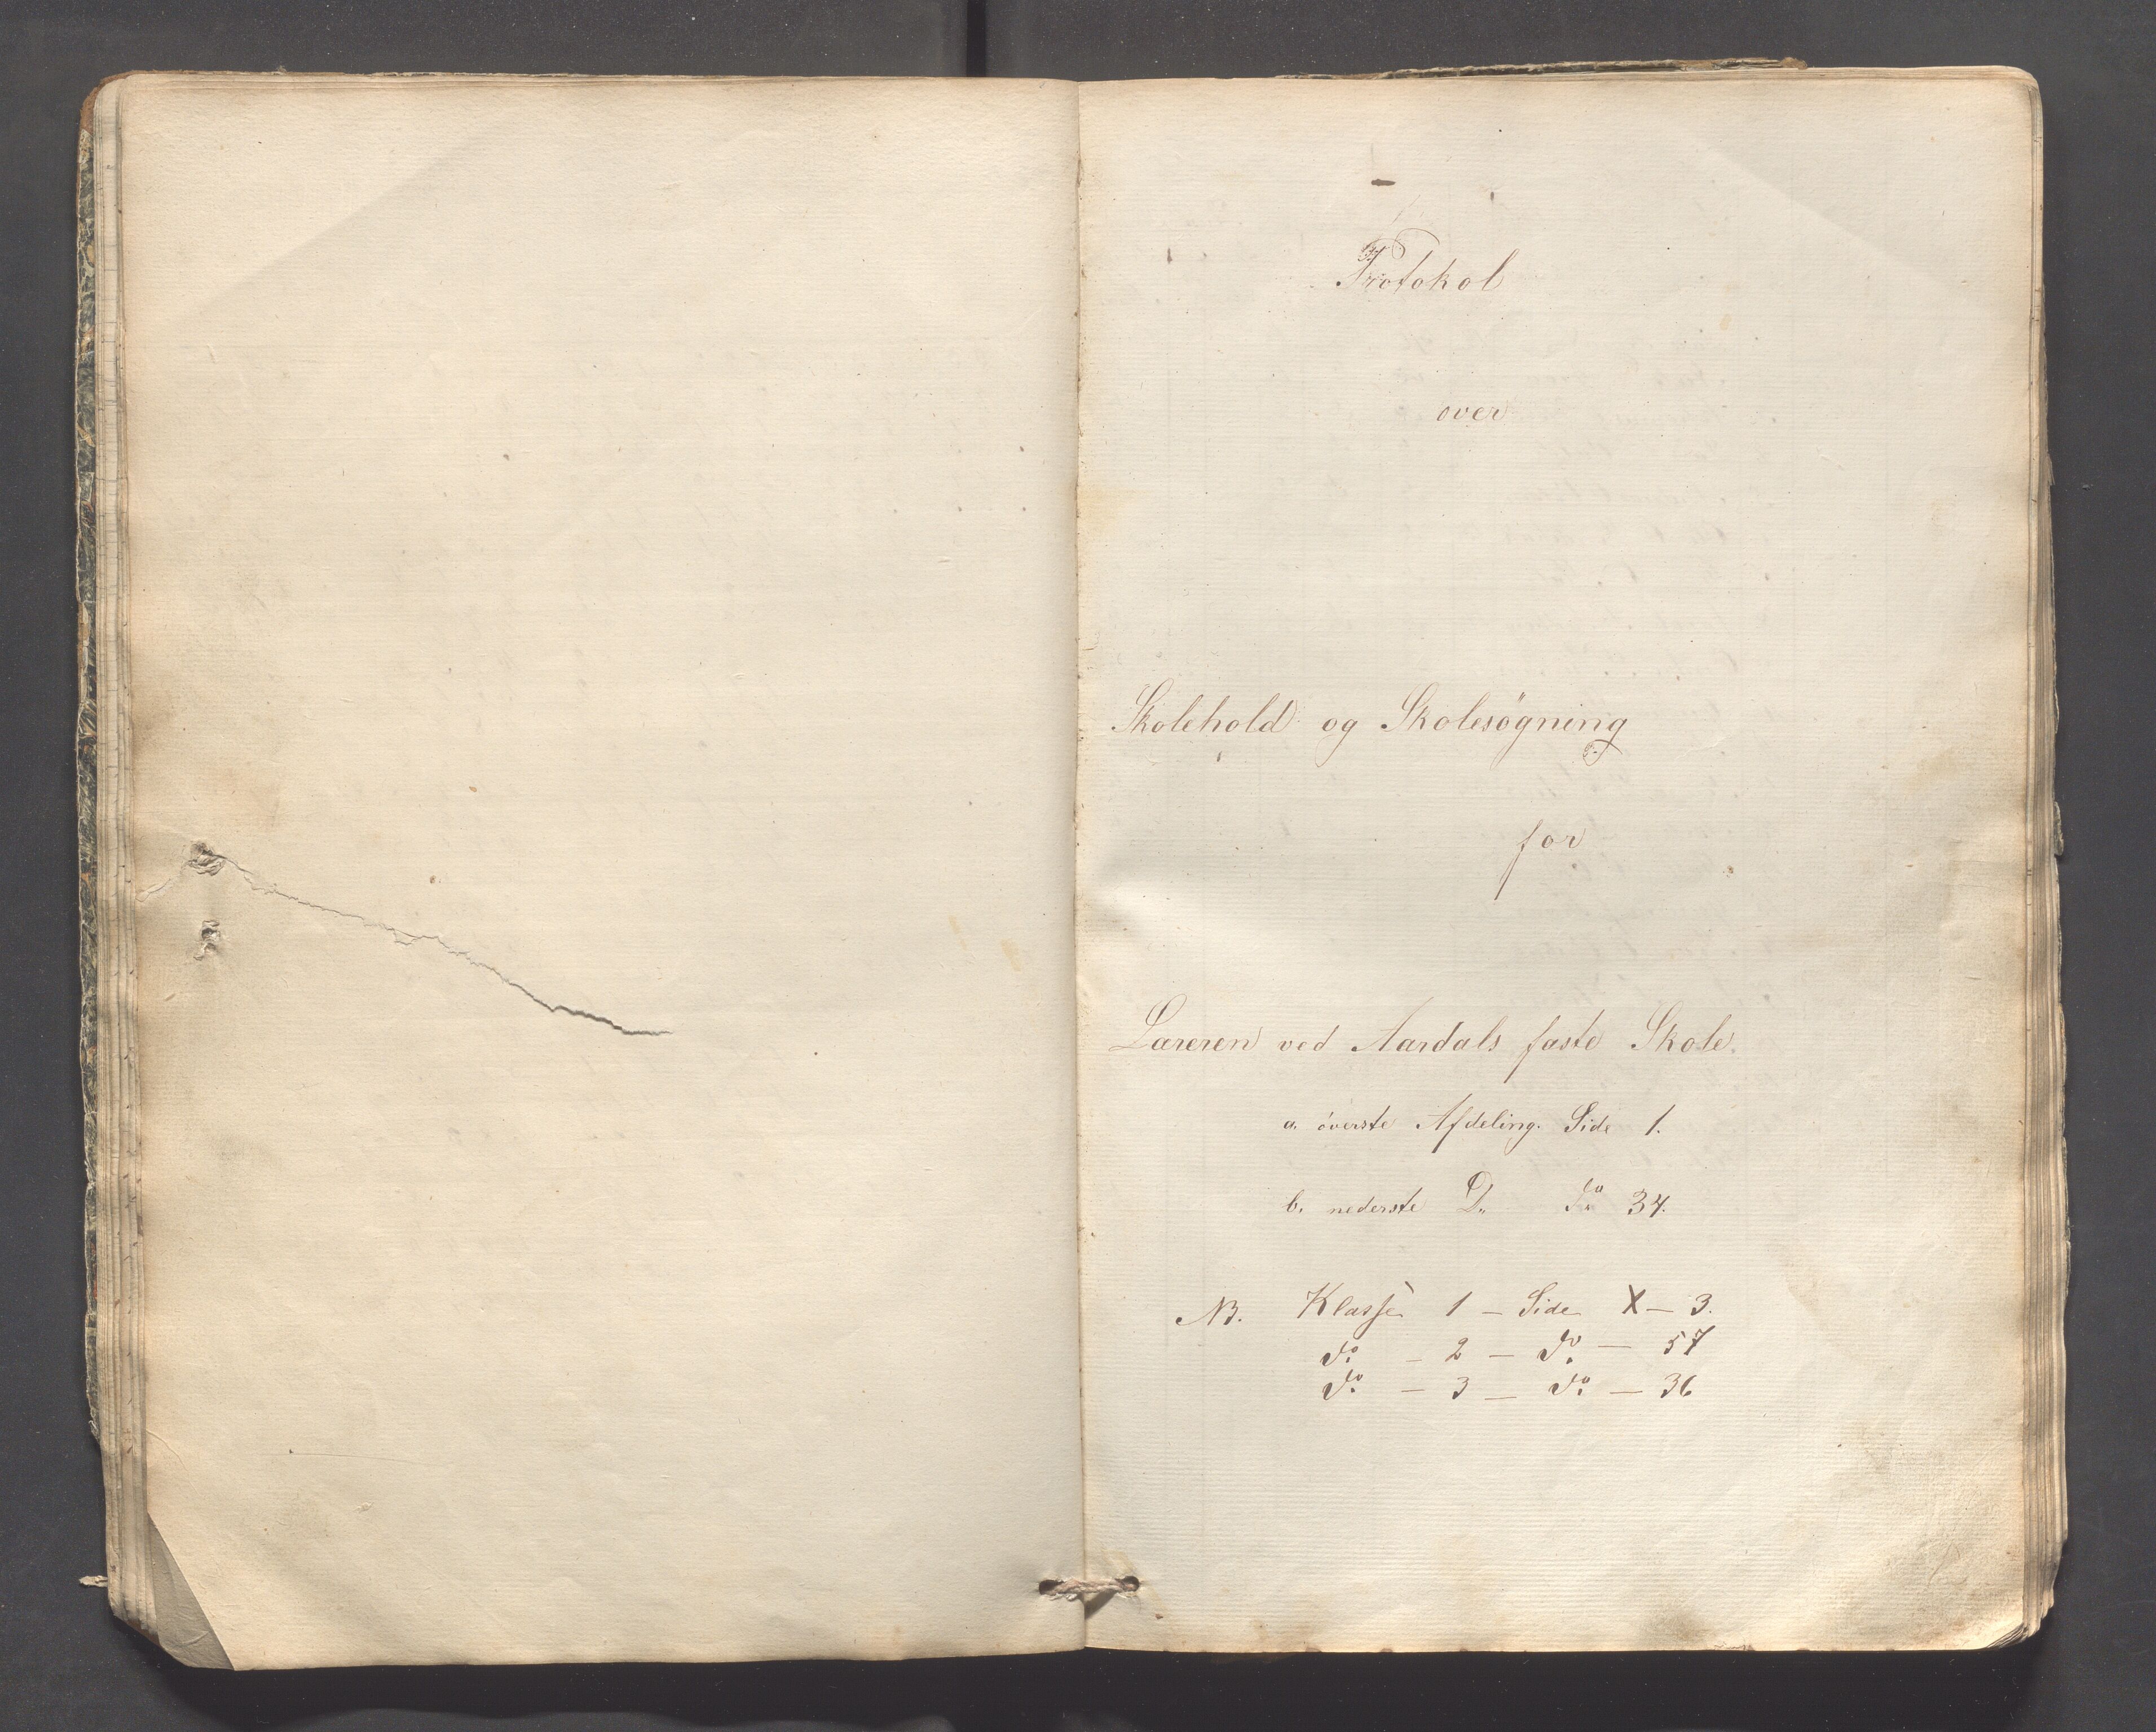 Protokol
over
Skolehold og Skolesögning
for
Læreren ved Aardals faste Skole.
a. överste Afdeling. Side 1.
b. nederste D„ do 34.
NB. Klasse 1 – Side X – 3.
do – 2 – do – 57
do – 3 – do – 36